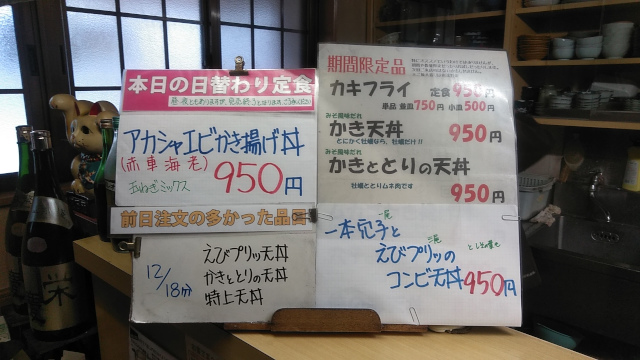 本日の日替わり定食
アカシャエビかき揚げ丼
(赤車海老)
玉ねぎミックス
950円
前日注文の多かった品
12/18分
えびプリッ天丼
かきととりの天丼
特上天丼
期間限定品
カキフライ 定食950円
単品 並皿750円 小皿500円
みそ風味だれ
かき天丼 950円
とにかく牡蠣なら、牡蠣だけ!!
みそ風味だれ
かきととりの天丼
牡蠣ととりムネ肉です
950円
一尾
一本穴子と
えびプリッの
コンビ天丼950円
栄